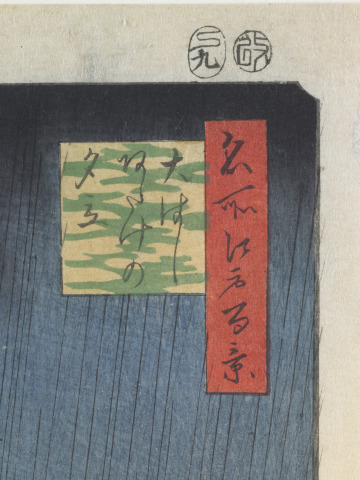 改
巳九
名所江戸百景
大はし
あたけの
夕立